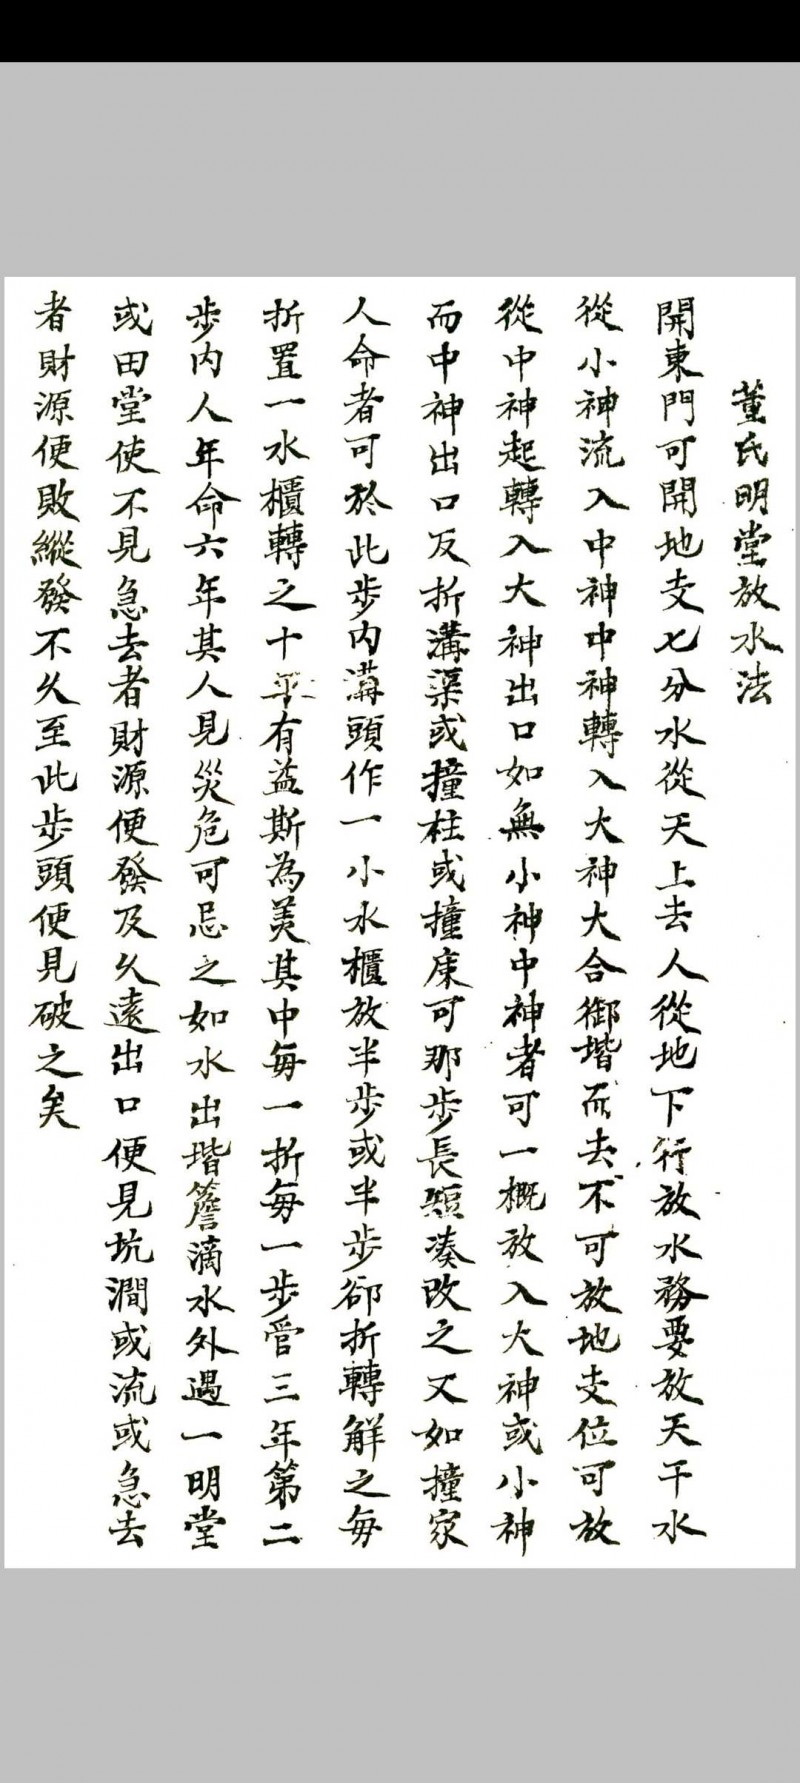 董氏明堂放水法
開東門可開地支七分水從天上去人從地下行放水務要放天干水
從小神流入中神中神轉入大神大合御堦而去不可放地支位可放
從中神起轉入大神出口如無小神中神者可一概放入大神或小神
而中神出口反折溝渠或撞柱或撞床可那步長短湊改之又如撞家
人命者可於此步內溝頭作一小水櫃放半步或半步卻折轉解之每
折置一水櫃轉之十年有益斯為美其中每一折每一步管三年第二
步內人年命六年其人見災危可忌之如水出堦簷滴水外遇一明堂
或田堂使不見急去者財源便發及久遠出口便見坑澗或流或急去
者財源便敗縱發不久至此步頭便見破之矣